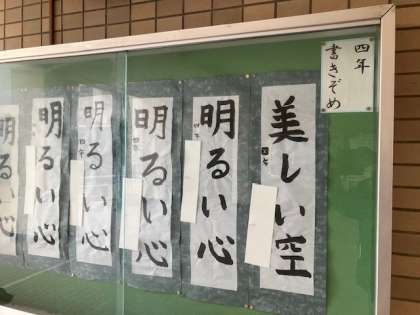 四年
書きぞめ
美しい空
明るい心
明るい心
明るい心
明るい心
明るい心